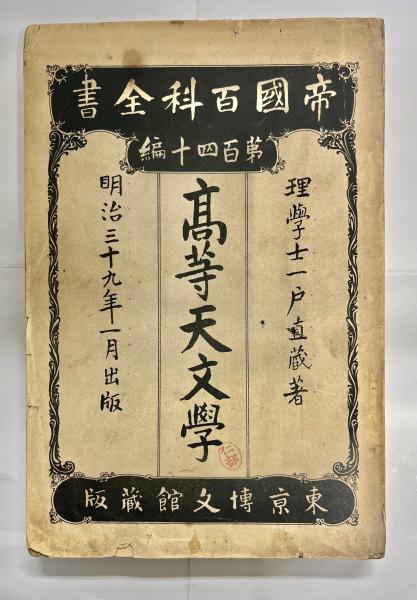 帝國百科全書
第百四十編
理學士一戶直藏著
高等天文學
明治三十九年一月出版
東京博文館藏版